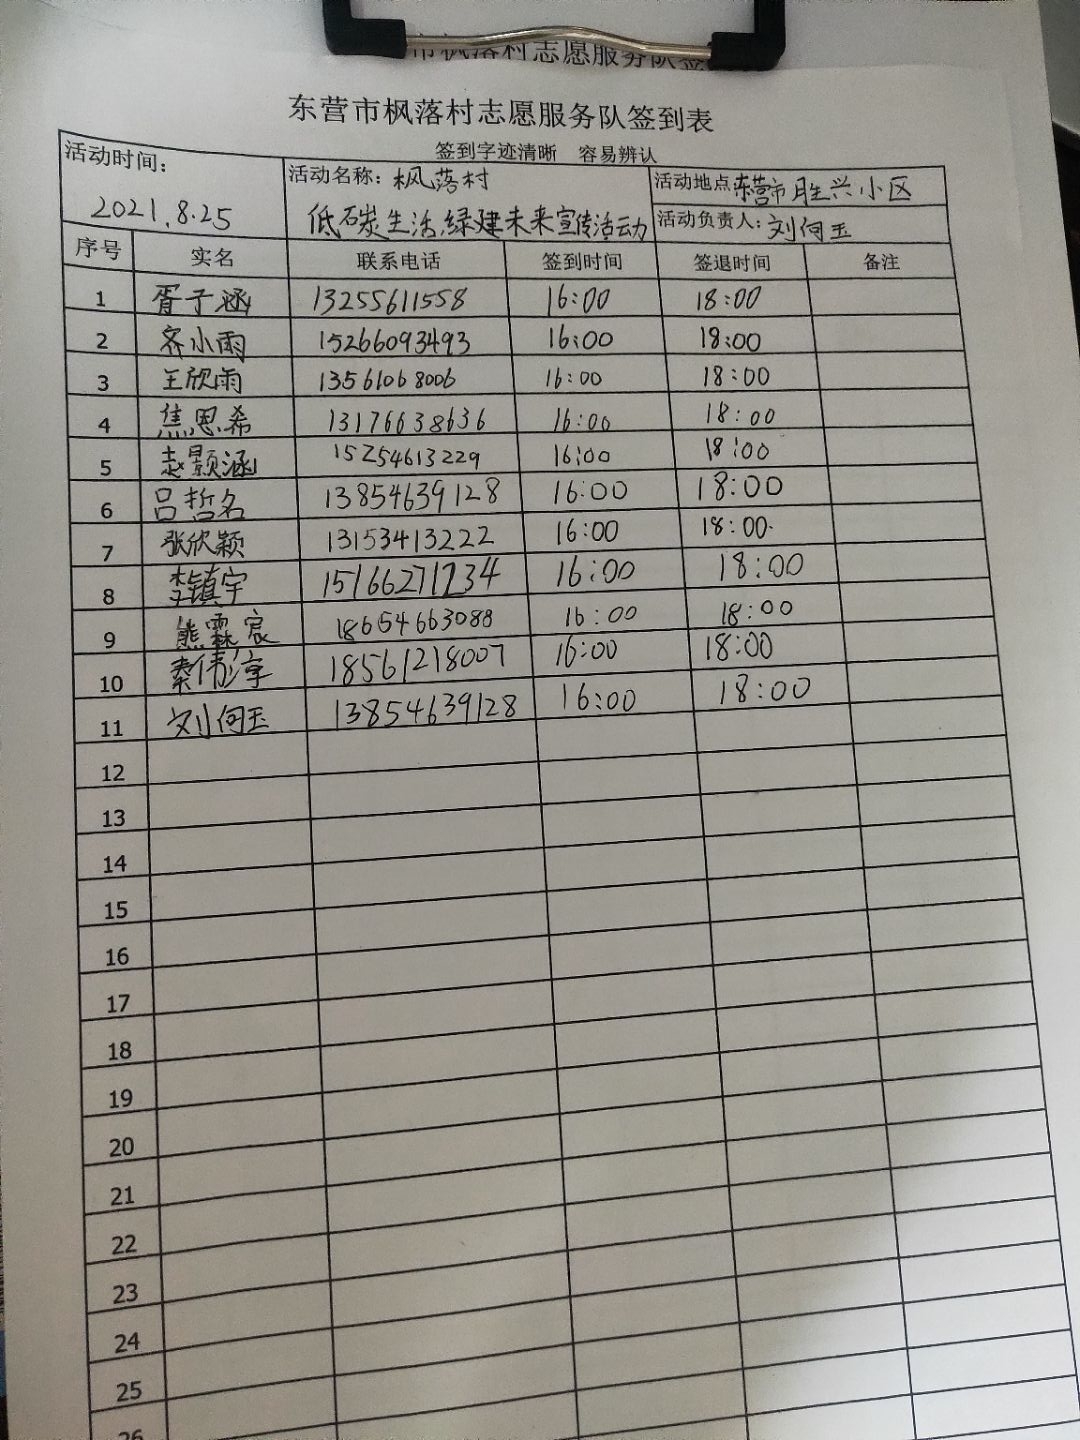 市枫落村志愿服务队签
东营市枫落村志愿服务队签到表
签到字迹清晰 容易辨认
活动时间: 2021.8.25
活动名称: 枫落村
低碳生活,绿建未来宣传活动
活动地点 东营市胜兴小区
活动负责人: 刘何玉
序号 实名 联系电话 签到时间 签退时间 备注
1 胥子涵 13255611558 16:00 18:00
2 齐小雨 15266093493 16:00 18:00
3 王欣雨 13561068006 16:00 18:00
4 焦恩希 13176638636 16:00 18:00
5 赵颢涵 15254613229 16:00 18:00
6 吕哲名 13854639128 16:00 18:00
7 张欣颖 13153413222 16:00 18:00
8 李镇宇 15166271734 16:00 18:00
9 熊霖宸 18654663088 16:00 18:00
10 秦伟淳 18561218007 16:00 18:00
11 刘何玉 13854639128 16:00 18:00
12
13
14
15
16
17
18
19
20
21
22
23
24
25
26